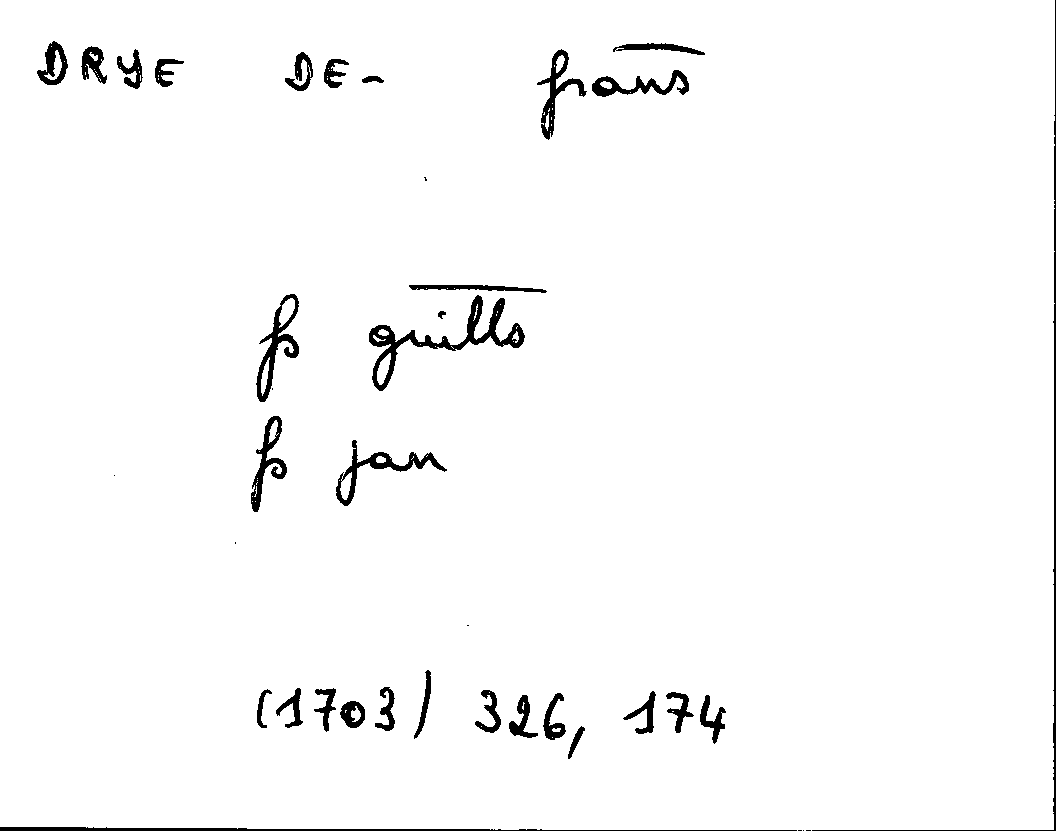 DRYE DE- frans
fs guills
fs jan
(1703) 326, 174